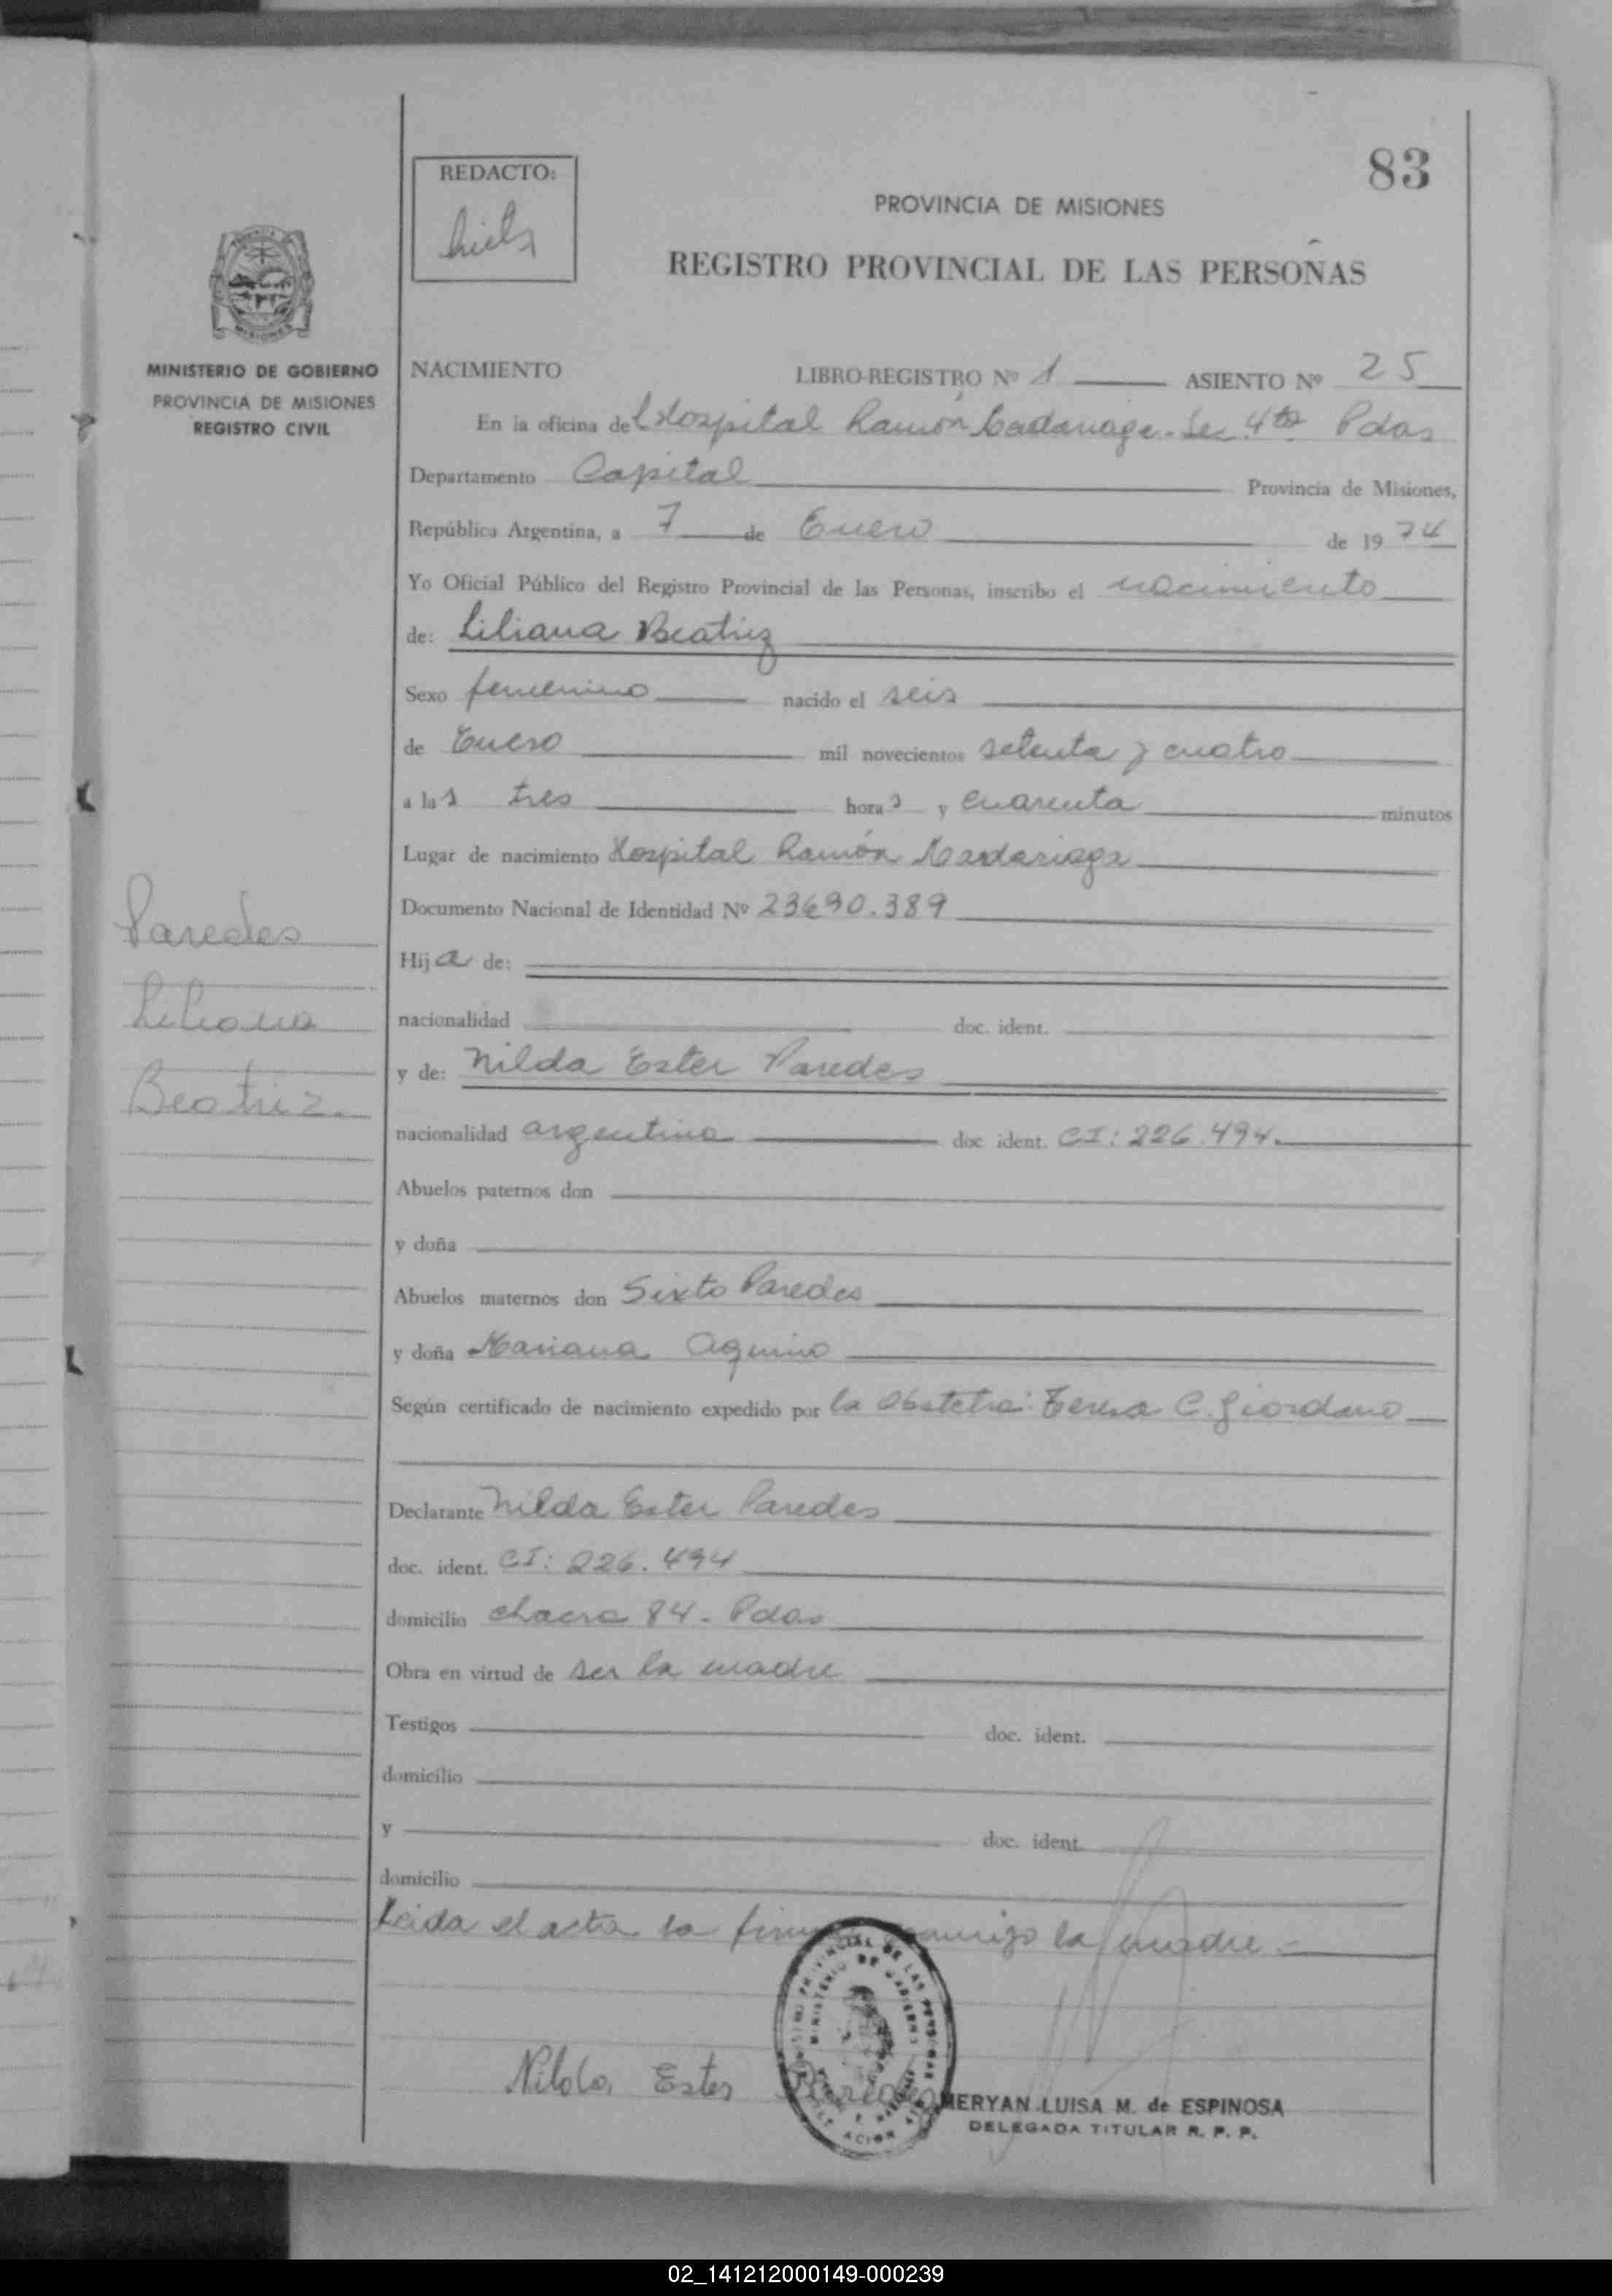 83
REDACTO:
PROVINCIA DE MISIONES
REGISTRO PROVINCIAL DE LAS PERSONAS
MINISTERIO DE GOBIERNO
PROVINCIA DE MISIONES
REGISTRO CIVIL
NACIMIENTO LIBRO-REGISTRO Nº 1 ASIENTO Nº 25
En la oficina del Hospital Ramón Madariaga - Sec 4ta Pdas
Departamento Capital Provincia de Misiones,
República Argentina, a 7 de Enero de 1974
Yo Oficial Público del Registro Provincial de las Personas, inscribo el nacimiento
de: Liliana Beatriz
Sexo femenino nacido el seis
de Enero mil novecientos setenta y cuatro
a las tres horas y cuarenta minutos
Lugar de nacimiento Hospital Ramón Madariaga
Documento Nacional de Identidad Nº 23690.389
Hija de:
nacionalidad doc. ident.
y de: Nilda Ester Paredes
nacionalidad argentina doc ident. CI: 226.494.
Abuelos paternos don
y doña
Abuelos maternos don Sixto Paredes
y doña Mariana Aquino
Según certificado de nacimiento expedido por la Obstetra: Teresa C. Giordano
Declarante Nilda Ester Paredes
doc. ident. CI: 226.494
domicilio chacra 84 - Pdas
Obra en virtud de ser la madre
Testigos doc. ident.
domicilio
y doc. ident.
domicilio
Leida el acta la firma conmigo la madre.-
Paredes
Liliana
Beatriz.
Nilda Ester Paredes
MERYAN LUISA M. de ESPINOSA
DELEGADA TITULAR R. P. P.
02_141212000149-000239